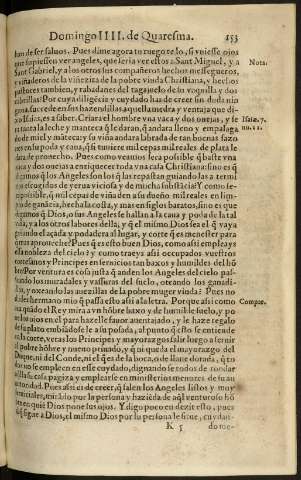 Domingo IIII. de Quaresma. 153
han de ser saluos. Pues dime agora tu ruego te lo, si vuiesse ojos
que supiessen ver angeles, que seria ver estos a Sant Miguel, y a
Nota.
Sant Gabriel, y a los otros sus compañeros hechos messegueros,
y viñaderos de la viñezita de la pobre viuda Christiana, y hechos
pastores tambien, y rabadanes del tagajuelo de su voquilla y dos
Por cuya diligēcia y cuydado has de creer sin duda nin
guna, sucede en sus hazendillas aquella medra y ventaja que di-
Isaias, es a saber. Criara el hombre vna vaca y dos ouejas, y se
Isaie. 7.
tanta la leche y manteca q̃ le daran, q̃ andara lleno y empalaga
nu. 21.
do de miel y māteca; y su viña andara labrada de tan buenas sazo
nes en su poda y caua, q̃ si tuuiere mil cepas mil reales de plata le
dara de prouecho. Pues como veamos seca possible q̃ baste vna
vaca y dos ouejas a enriquecer toda vna casa Christiana: sino es q̃
digamos q̃ los Angeles son los q̃ las repastan guiando las a terri
torios escogidos de yerua viciosa y de mucha substācia? Y como se-
possible, q̃ mil cepas de viña den a su dueño mil reales en lim-
pio de ganācia, hecha la costa, y mas en siglos baratos, sino es que
digamos q̃ Dios, o sus Angeles se hallan a la caua y poda de la tal
viña, y a los otros labores della; y q̃ el mismo Dios sea el q̃ vaya
guiando el açada y podadera al lugar, y corte q̃ es menester para
que aproueche? Pues q̃ es esto buen Dios, como assi empleays
la nobleza del cielo? y como traeys assi occupados vuestros
cortesanos y Principes en seruicios tan baxos y humildes del hō
bre? Por ventura es cosa justa q̃ anden los Angeles del cielo pas-
seando los muradales y vassuras del suelo, oteando los ganadi-
llos, y oxeando las auezillas de la pobre muger viuda? Pues no
de hermano mio q̃ passa esto assi a la letra. Por que assi como
Compar.
quādo el Rey mira a vn hōbre baxo y de humilde suelo, y po
ne los ojos en el para hazelle fauor auentajado, y le haze regalo
de su plato embiādose le a su posada, al punto q̃ esto se entiende
en la corte, vereys los Principes y mayorazgos salir luego a seruir
al pobre hōbre y nueuo priuado, y q̃ ni queda el mayorazgo del
Duque, ni del Conde, ni el q̃ es de la boca, o de llaue dorada, q̃ to-
dos no se empleen en esse cuydado, dignando se todos de rondar
la casa pagiza y emplearse en ministerios menores de su au-
toridad. Pues assi es de creer, q̃ salen los Angeles listos y muy
mirādo por la persona y haziēda de aq̃l venturoso hō
bre en quiē Dios pone sus ojos. Y digo poco en dezir esto, pues
q̃ sigue a Dios, el mismo Dios por su persona le sirue, cuydan-
K 5 do to-